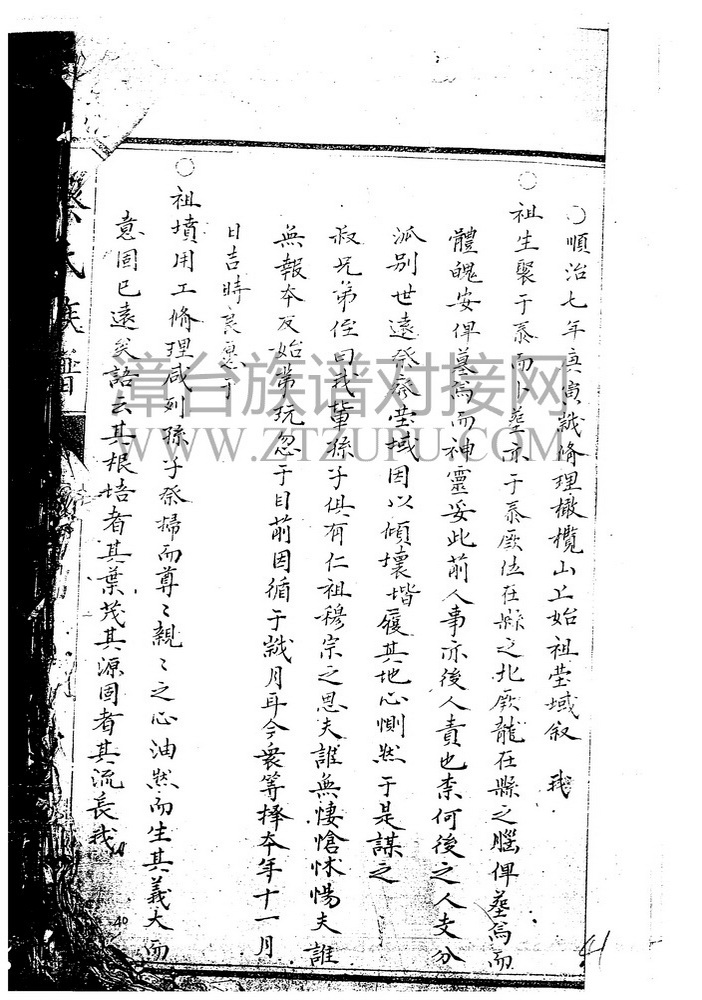 ○順治七年庚寅歲脩理橄欖山上始祖塋域叙　我
○祖生聚于泰而卜葬亦于泰厥位在縣之北厥龍在縣之腦俾葬焉而
體魄安俾墓焉而神靈妥此前人事亦後人責也柰何後之人支分
派別世遠祭家塋域因以傾壞堦履其地心惻然于是謀之
叔兄弟侄曰我輩孫子俱有仁祖穆宗之恩夫誰無悽愴怵惕夫誰
無報本反始第玩忽于目前因循于歲月耳今衆等擇本年十一月
日吉時良恳于
○祖墳用工脩理咸列孫子祭掃而尊〻親〻之心油然而生其義大而
意固已遠矣語云其根培者其葉茂其源固者其流長我
氏族譜
漳台族谱对接网
WWW.ZTZUPU.COM
40
41